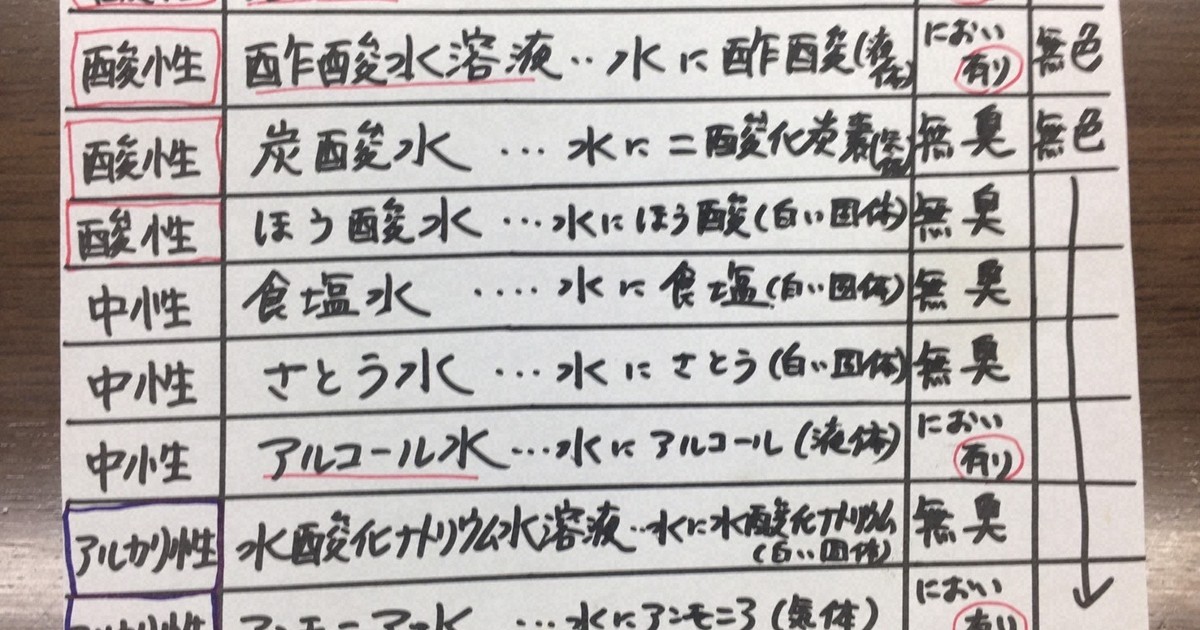 酸性 酢酸水溶液‥水に酢酸(液体) におい有り 無色
酸性 炭酸水 …水に二酸化炭素(気体) 無臭 無色
酸性 ほう酸水 …水にほう酸(白い固体) 無臭
中性 食塩水 ‥‥水に食塩(白い固体) 無臭
中性 さとう水 …水にさとう(白い固体) 無臭
中性 アルコール水…水にアルコール(液体) におい有り
アルカリ性 水酸化ナトリウム水溶液‥水に水酸化ナトリウム(白い固体) 無臭
アルカリ性 アンモニア水 …水にアンモニア(気体) におい有り